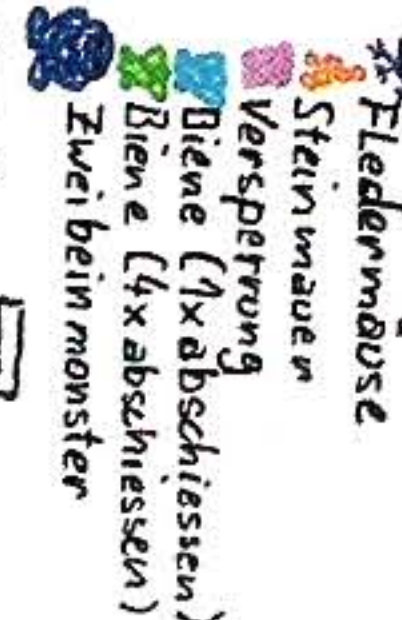 Fledermäuse
Steinmauer
Versperrung
Biene (1x abschiessen)
Biene (4x abschiessen)
Zweibeinmonster